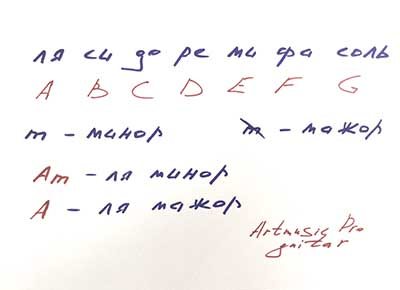 ля си до ре ми фа соль
A B C D E F G
m - минор m - мажор
Am - ля минор
A - ля мажор
Artmusic Pro
guitar